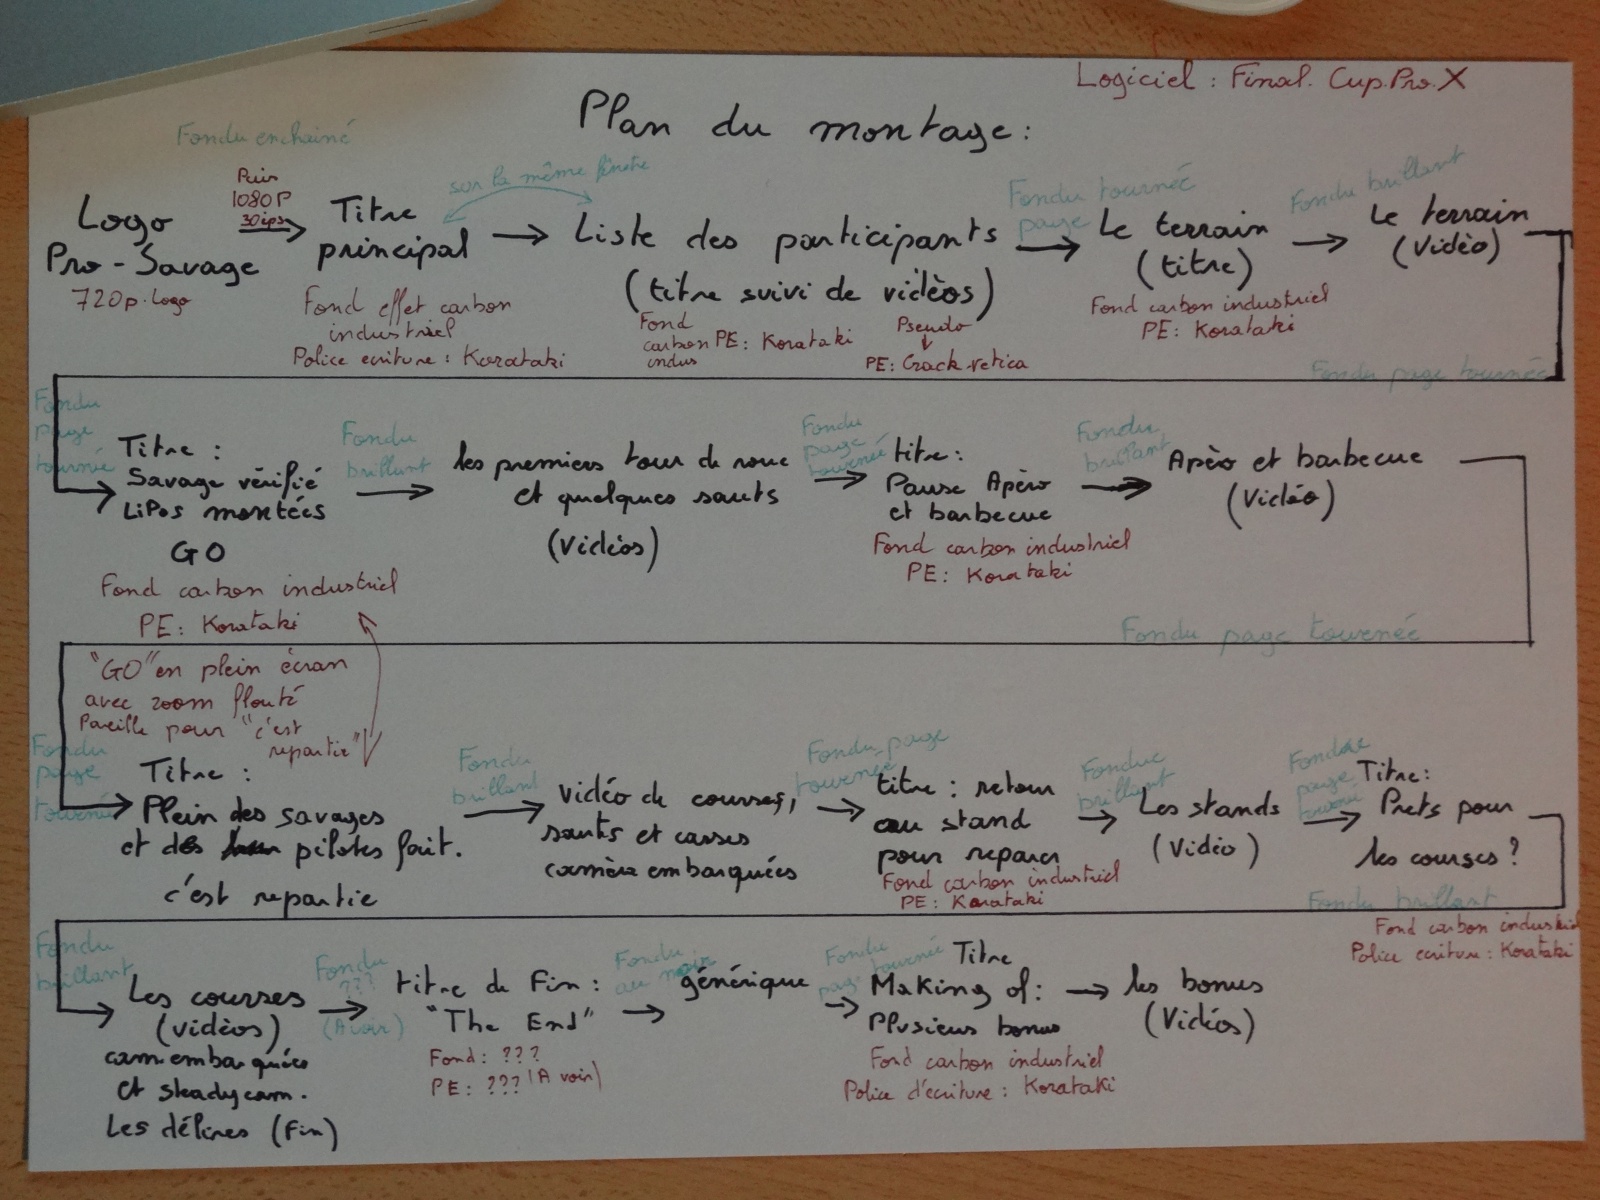 Logiciel : Final. Cup.Pro.X
Plan du montage :
Fondu enchainé
Puis
1080P
30ips
sur la même fenêtre
Fondu tournée
page
Fondu brillant
Logo
Pro-Savage
720p. Logo
Titre
principal
Fond effet carbon
industriel
Police ecriture : Korataki
Liste des participants
(titre suivi de vidéos)
Fond
carbon PE : Korataki
indus
Pseudo
PE : Crack-vetica
Le terrain
(titre)
Fond carbon industriel
PE : Korataki
Le terrain
(Vidéo)
Fondu page tournée
Fondu
page
tournée
Titre :
Savage vérifié
LiPos montées
GO
Fond carbon industriel
PE : Korataki
Fondu
brillant
les premiers tour de roue
et quelques sauts
(Vidéos)
Fondu
page
tournée
titre :
Pause Apéro
et barbecue
Fond carbon industriel
PE : Korataki
Fondu
brillant
Apéro et barbecue
(Vidéo)
Fondu page tournée
"GO" en plein écran
avec zoom flouté
Pareille pour "c'est
repartie"
Fondu
page
tournée
Titre :
Plein des savages
et des pilotes fait.
c'est repartie
Fondu
brillant
vidéo de courses,
sauts et casses
caméra embarquées
Fondu page
tournée
titre : retour
au stand
pour reparer
Fond carbon industriel
PE : Korataki
Fondue
brillant
Les stands
(Vidéo)
Fondue
page
tournée
Titre :
Prets pour
les courses ?
Fondu brillant
Fond carbon industriel
Police ecriture : Korataki
Fondu
brillant
Les courses
(vidéos)
cam embarquées
et steadycam.
Les délires (Fin)
Fondu
???
(A voir)
titre de Fin :
"The End"
Fond : ???
PE : ??? (A voir)
Fondu
au noir
générique
Fondu
page tournée
Titre
Making of :
Plusieurs bonus
Fond carbon industriel
Police d'écriture : Korataki
les bonus
(Vidéos)